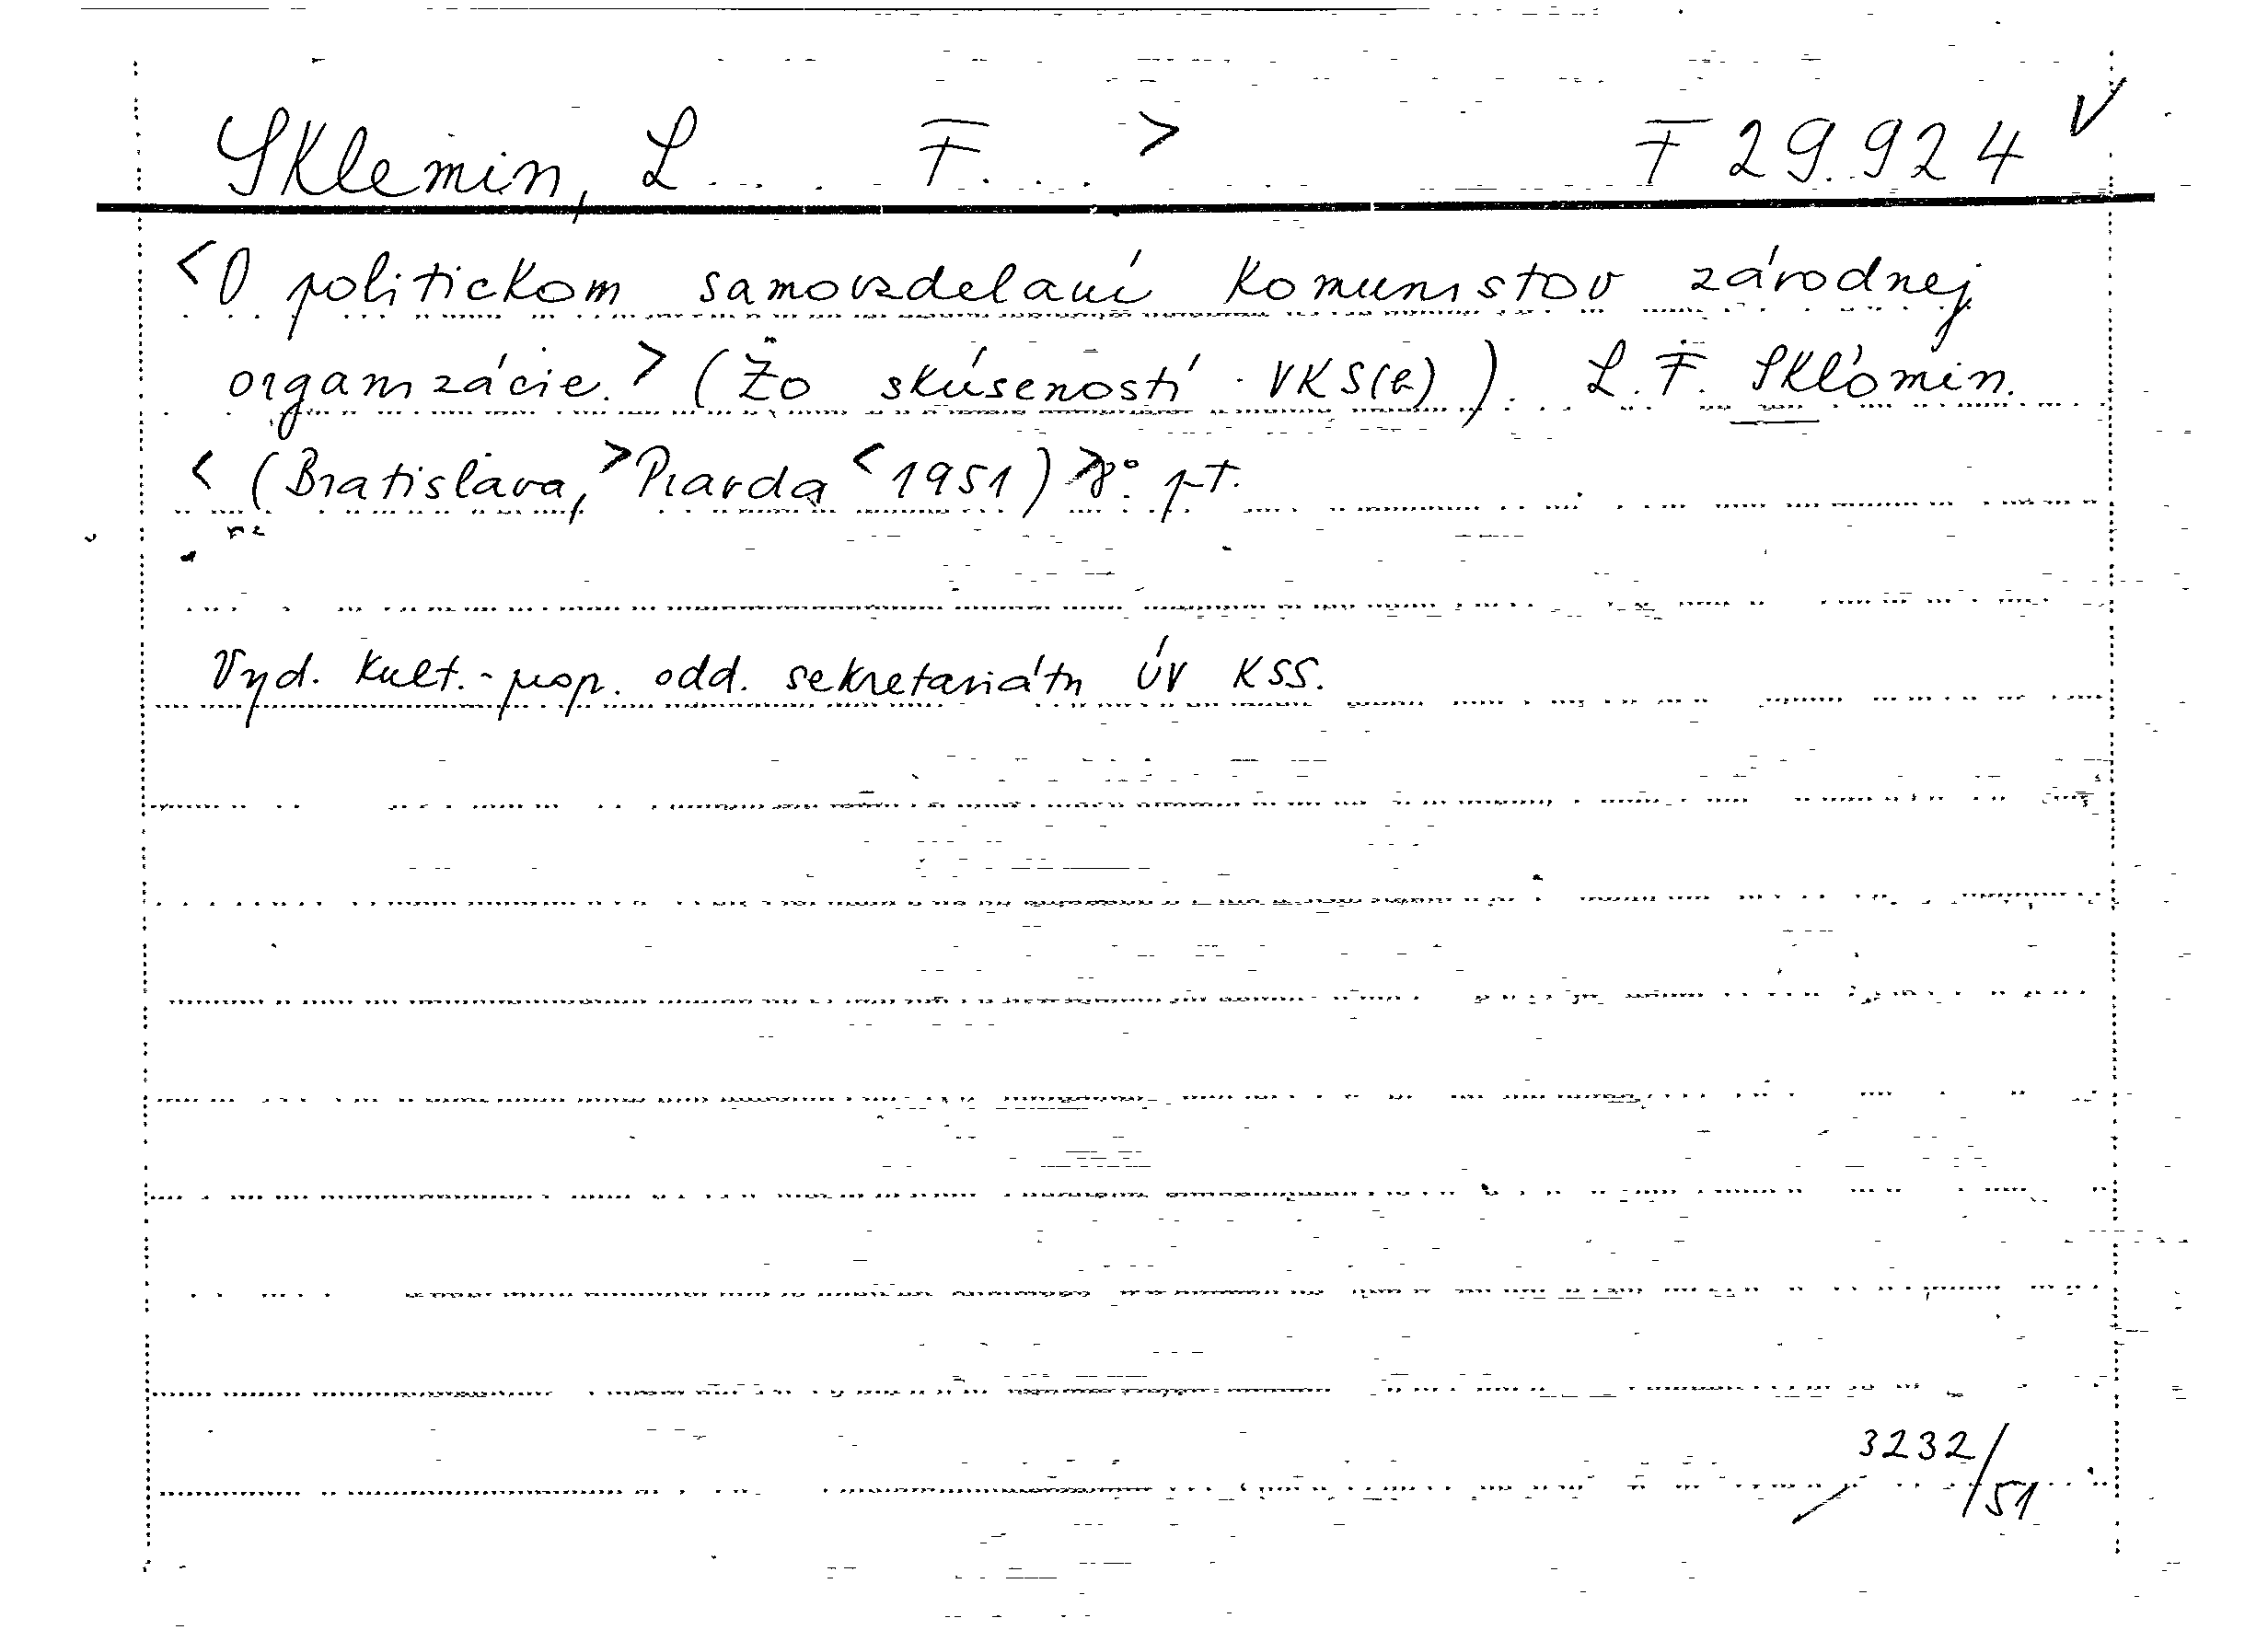 Sklemin, L... F... > F 29.924 V
<O politickom samovzdelaní komunistov závodnej
organizácie.> (Zo skúseností VKS(b)). L. F. Skľomin.
< (Bratislava, > Pravda < 1951) > 8°. pt.
Vyd. Kult.-prop. odd. sekretariátu ÚV KSS.
3232/51